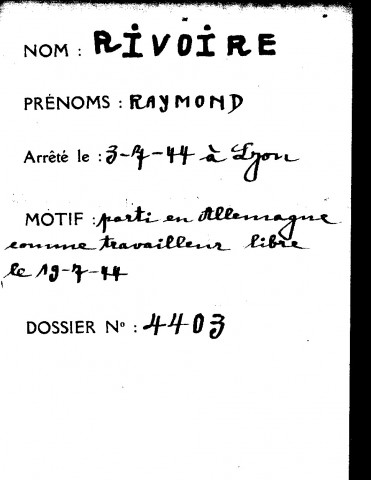 NOM : RIVOIRE
PRÉNOMS : RAYMOND
Arrêté le : 3-7-44 à Lyon
MOTIF : parti en Allemagne
comme travailleur libre
le 19-7-44
DOSSIER Nº : 4403